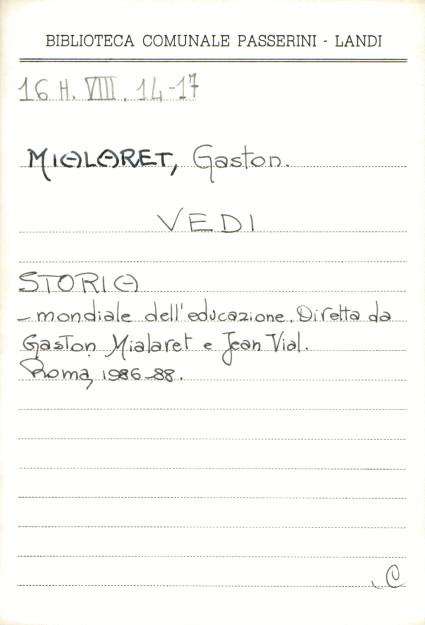 BIBLIOTECA COMUNALE PASSERINI - LANDI
16 H. VIII. 14-17
MIALARET, Gaston.
VEDI
STORIA
- mondiale dell'educazione. Diretta da
Gaston Mialaret e Jean Vial.
Roma, 1986-88.
C